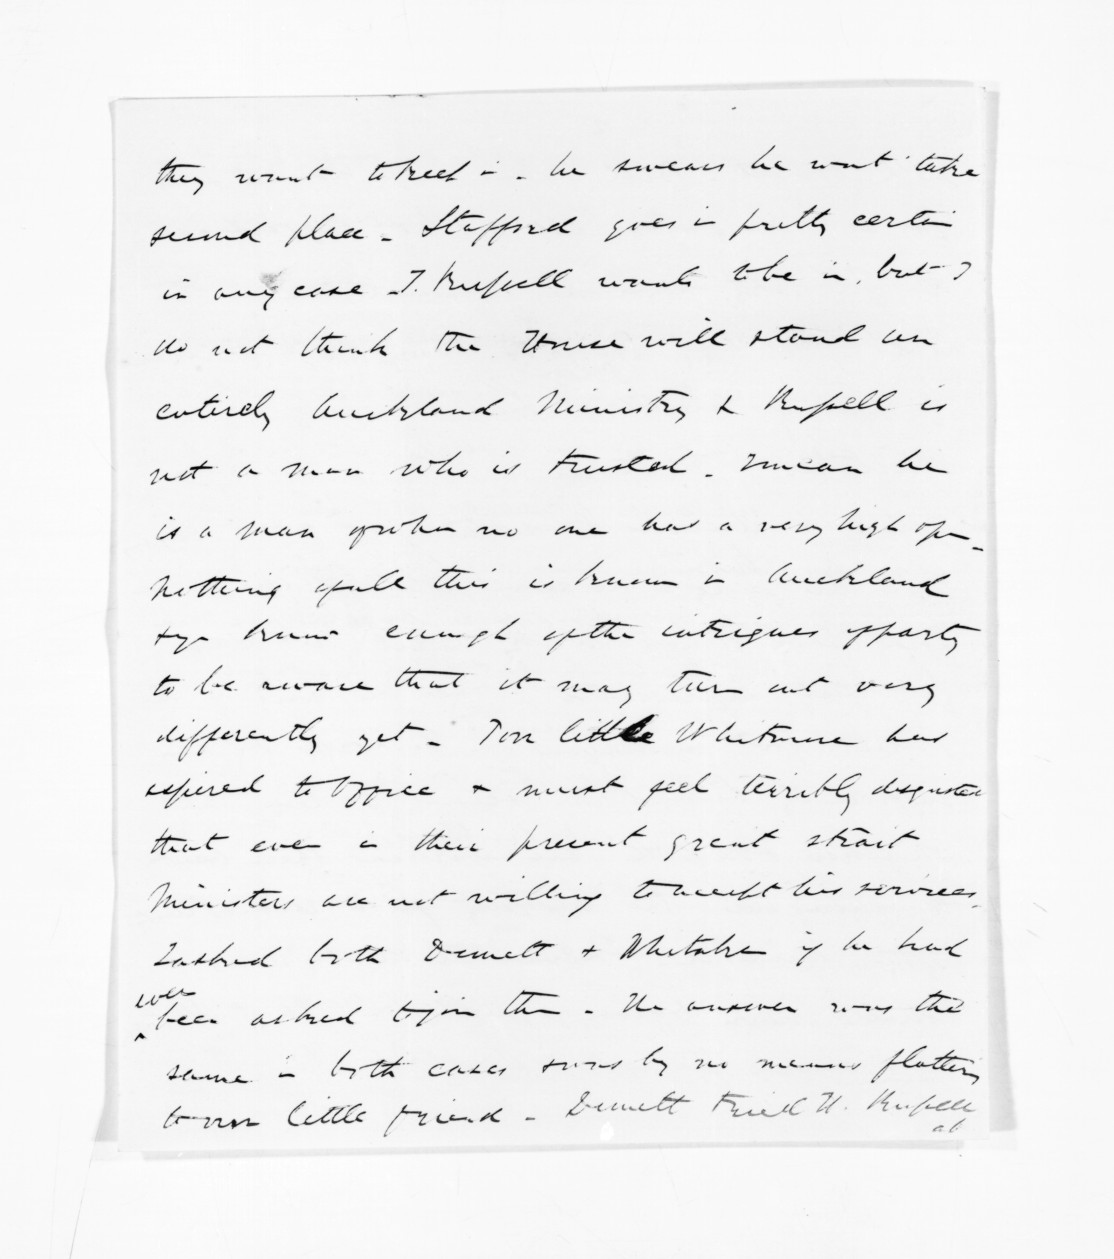 they want to keep in - he swears he wont take
second place - Stafford goes in pretty certain
in any case - T. Russell wants to be in, but I
do not think the House will stand an
entirely Auckland Ministry & Russell is
not a man who is trusted - I mean he
is a man of whom no one has a very high op-
Nothing of all this is known in Auckland
& you know enough of the intrigues of party
to be aware that it may turn out very
differently yet - Poor little Whitmore has
aspired to Office & must feel terribly disgusted
that even in their present great strait
Ministers are not willing to accept his services.
I asked both Domett & Whitaker if he had
ever
been asked to join them - The answer was the
same in both cases & was by no means flattering
to our little friend - Domett tried H. Russell